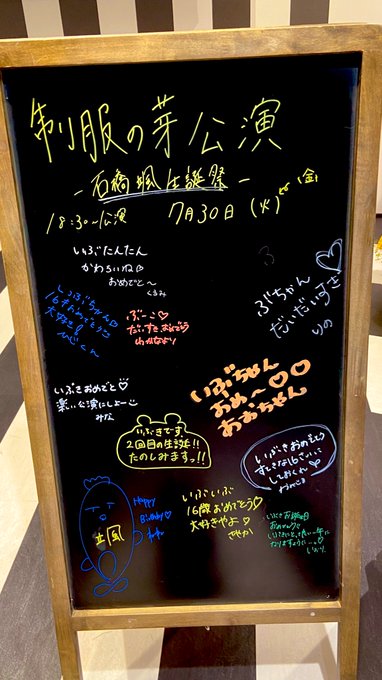 制服の芽公演
-石橋颯生誕祭-
18:30~公演 7月30日(火)
(金)
いぶたんたん
かわいいね♡
おめでと〜
くるみ
いぶぶちゃん
16才おめでとう♡
大好き!
ぶーこ♡
だいすきおめでとう
ぶちゃん
だいだいすき
りの
いぶちゃん
おめ〜♡♡
あおちゃん
いぶきおめでと♡
楽しい公演にしよー♡
みな
いぶきです
2回目の生誕!!
たのしみますっ!!
いぶきおめでとう
すてきな16さいに
してねん♡
颯
Happy
Birthday♡
いぶいぶ
16歳おめでとう♡
大好きやよ
さやか
おめでとう